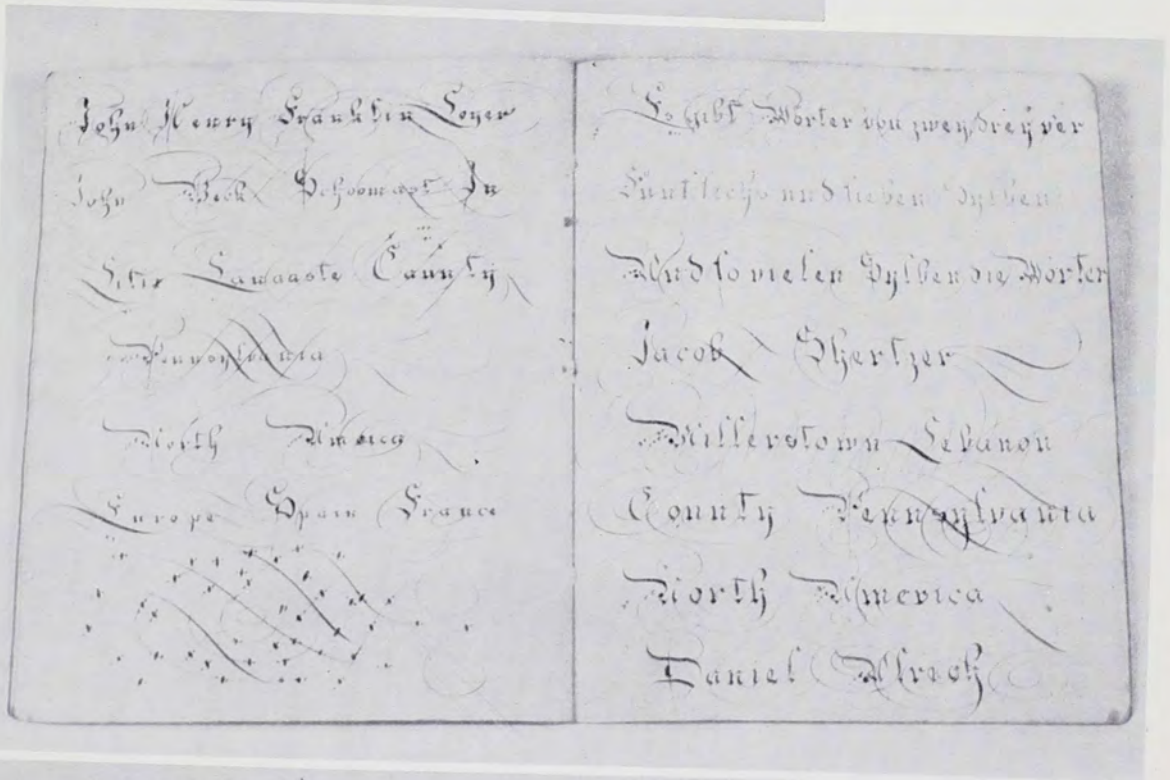 John Henry Franklin Loyer
John Beck Schoomast In
Litis Lancaste County
Pennsylvania
North America
Europe Spain France
Es gibt Wörter von zwey drey vier
Funf sechs und sieben Sylben
Und so vielen Sylben die Wörter
Jacob Shertzer
Millerstown Lebanon
County Pennsylvania
North America
Daniel Ulrich